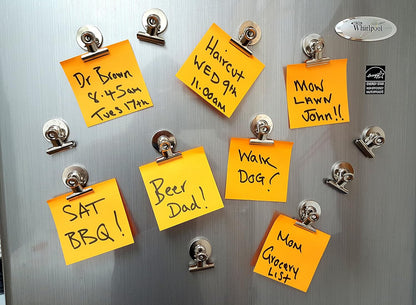 Whirlpool
ENERGY STAR
Dr Brown
8:45am
Tues 17th
Haircut
WED 9th
11.00am
MOW
LAWN
JOHN!!
SAT
BBQ!
Beer
Dad!
Walk
DOG!
Mom
Grocery
List